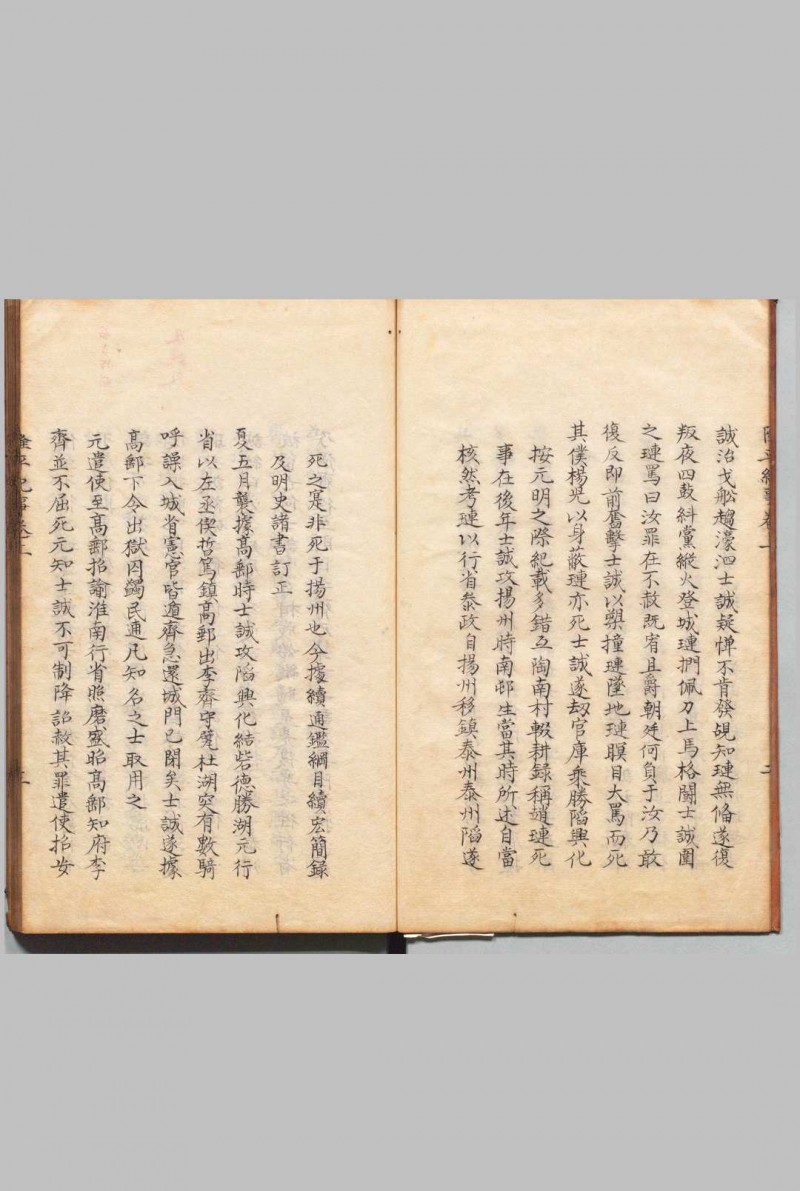 誠治戈船趨濠泗士誠疑憚不肯發覘知璉無備遂復
叛夜四鼓糾黨縱火登城璉捫佩刀上馬格鬭士誠圍
之璉罵曰汝罪在不赦既宥且爵朝廷何負于汝乃敢
復反即前奮擊士誠以槊撞璉墜地璉瞋目大罵而死
其僕楊兒以身蔽璉亦死士誠遂刼官庫乘勝陷興化
按元明之際紀載多錯互陶南村輟耕錄稱趙璉死
事在後年士誠攻揚州時南邨生當其時所述自當
核然考璉以行省叅政自揚州移鎮泰州泰州陷遂
死之寔非死于揚州也今據續通鑑綱目續宏簡錄
及明史諸書訂正
夏五月襲據高郵時士誠攻陷興化結砦德勝湖元行
省以左丞偰哲篤鎮高郵出李齊守甓社湖突有數騎
呼譟入城省憲官皆遁齊急還城門已閉矣士誠遂據
高郵下令出獄囚蠲民逋凡知名之士取用之
元遣使至高郵招諭淮南行省照磨盛昭高郵知府李
齊並不屈死元知士誠不可制降詔赦其罪遣使招安
隆平紀事卷上